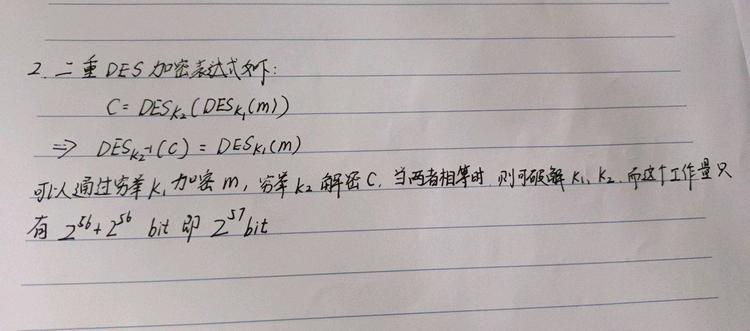 2. 二重DES加密表达式如下:
C = DES_{K₂}(DES_{K₁}(m))
⇒ DES_{K₂^{-1}}(C) = DES_{K₁}(m)
可以通过穷举K₁加密m, 穷举K₂解密C, 当两者相等时 则可破解K₁、K₂. 而这个工作量只
有 2^{56}+2^{56} bit 即 2^{57}bit